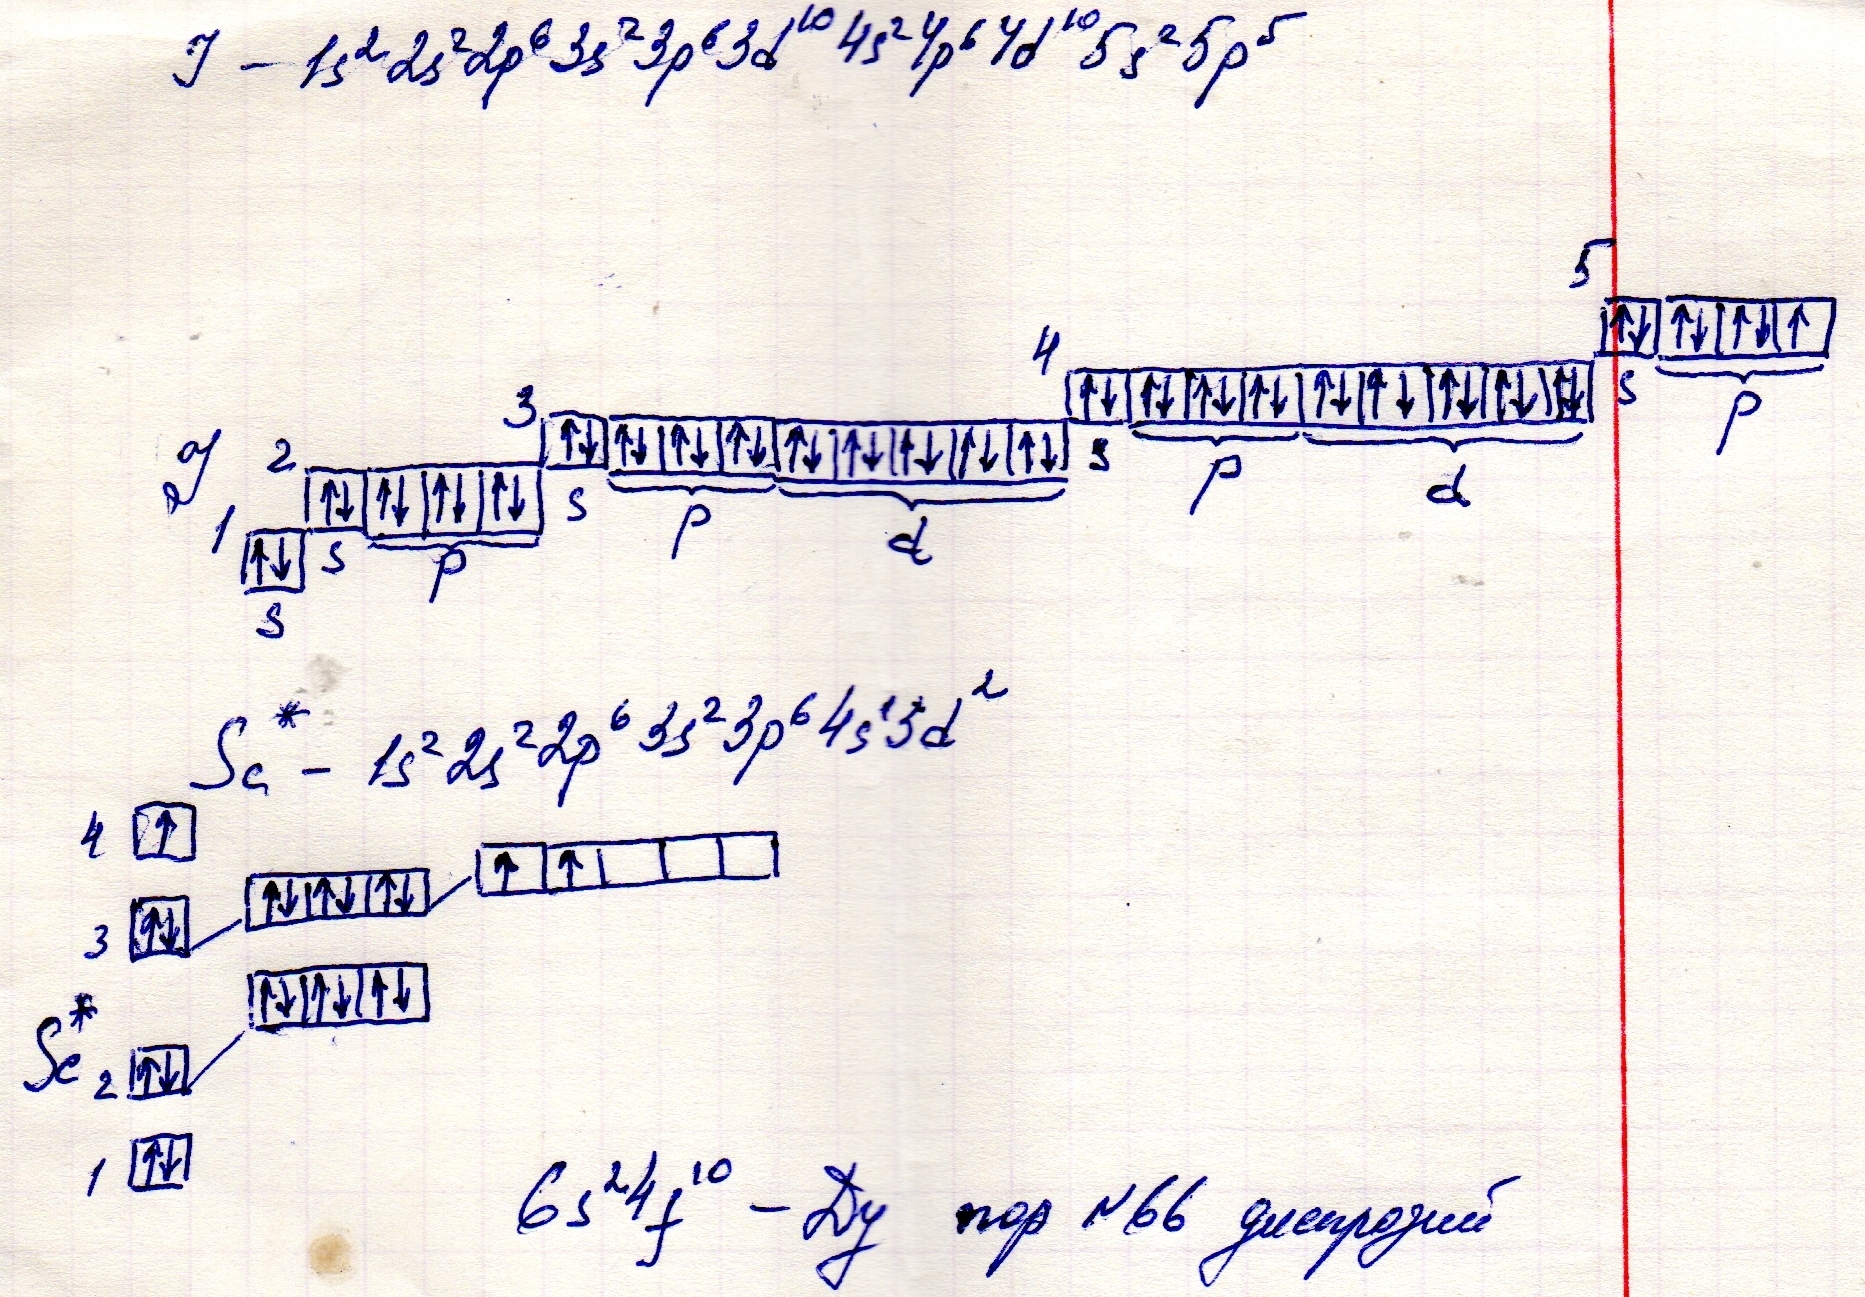 J – 1s² 2s² 2p⁶ 3s² 3p⁶ 3d¹⁰ 4s² 4p⁶ 4d¹⁰ 5s² 5p⁵
5
4
3
J 2
1
s p
s p d
s p d
s p
s
Sc* – 1s² 2s² 2p⁶ 3s² 3p⁶ 4s¹ 3d²
4
3
Sc* 2
1
6s² 4f¹⁰ – Dy пор №66 диспрозий